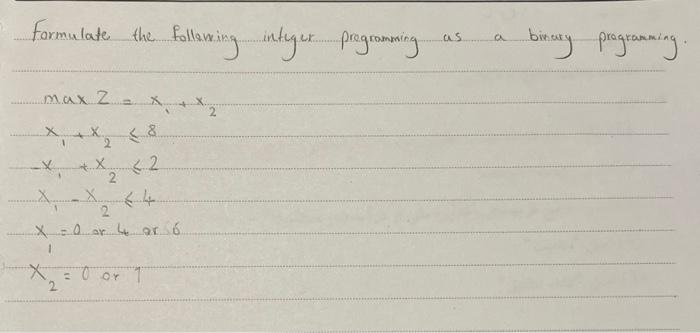 Formulate the following integer programming as a binary programming.
max Z = x₁ + x₂
x₁ + x₂ ≤ 8
-x₁ + x₂ ≤ 2
x₁ - x₂ ≤ 4
x₁ = 0 or 4 or 6
x₂ = 0 or 1